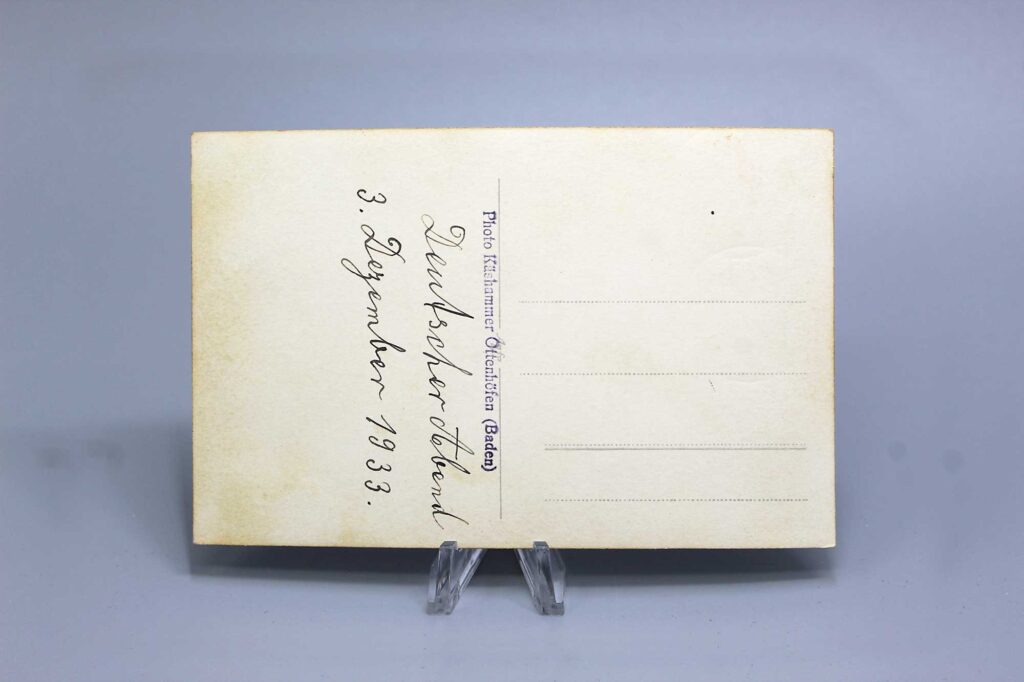 Photo Käshammer Ottenhöfen (Baden)
Deutscher Abend
3. Dezember 1933.